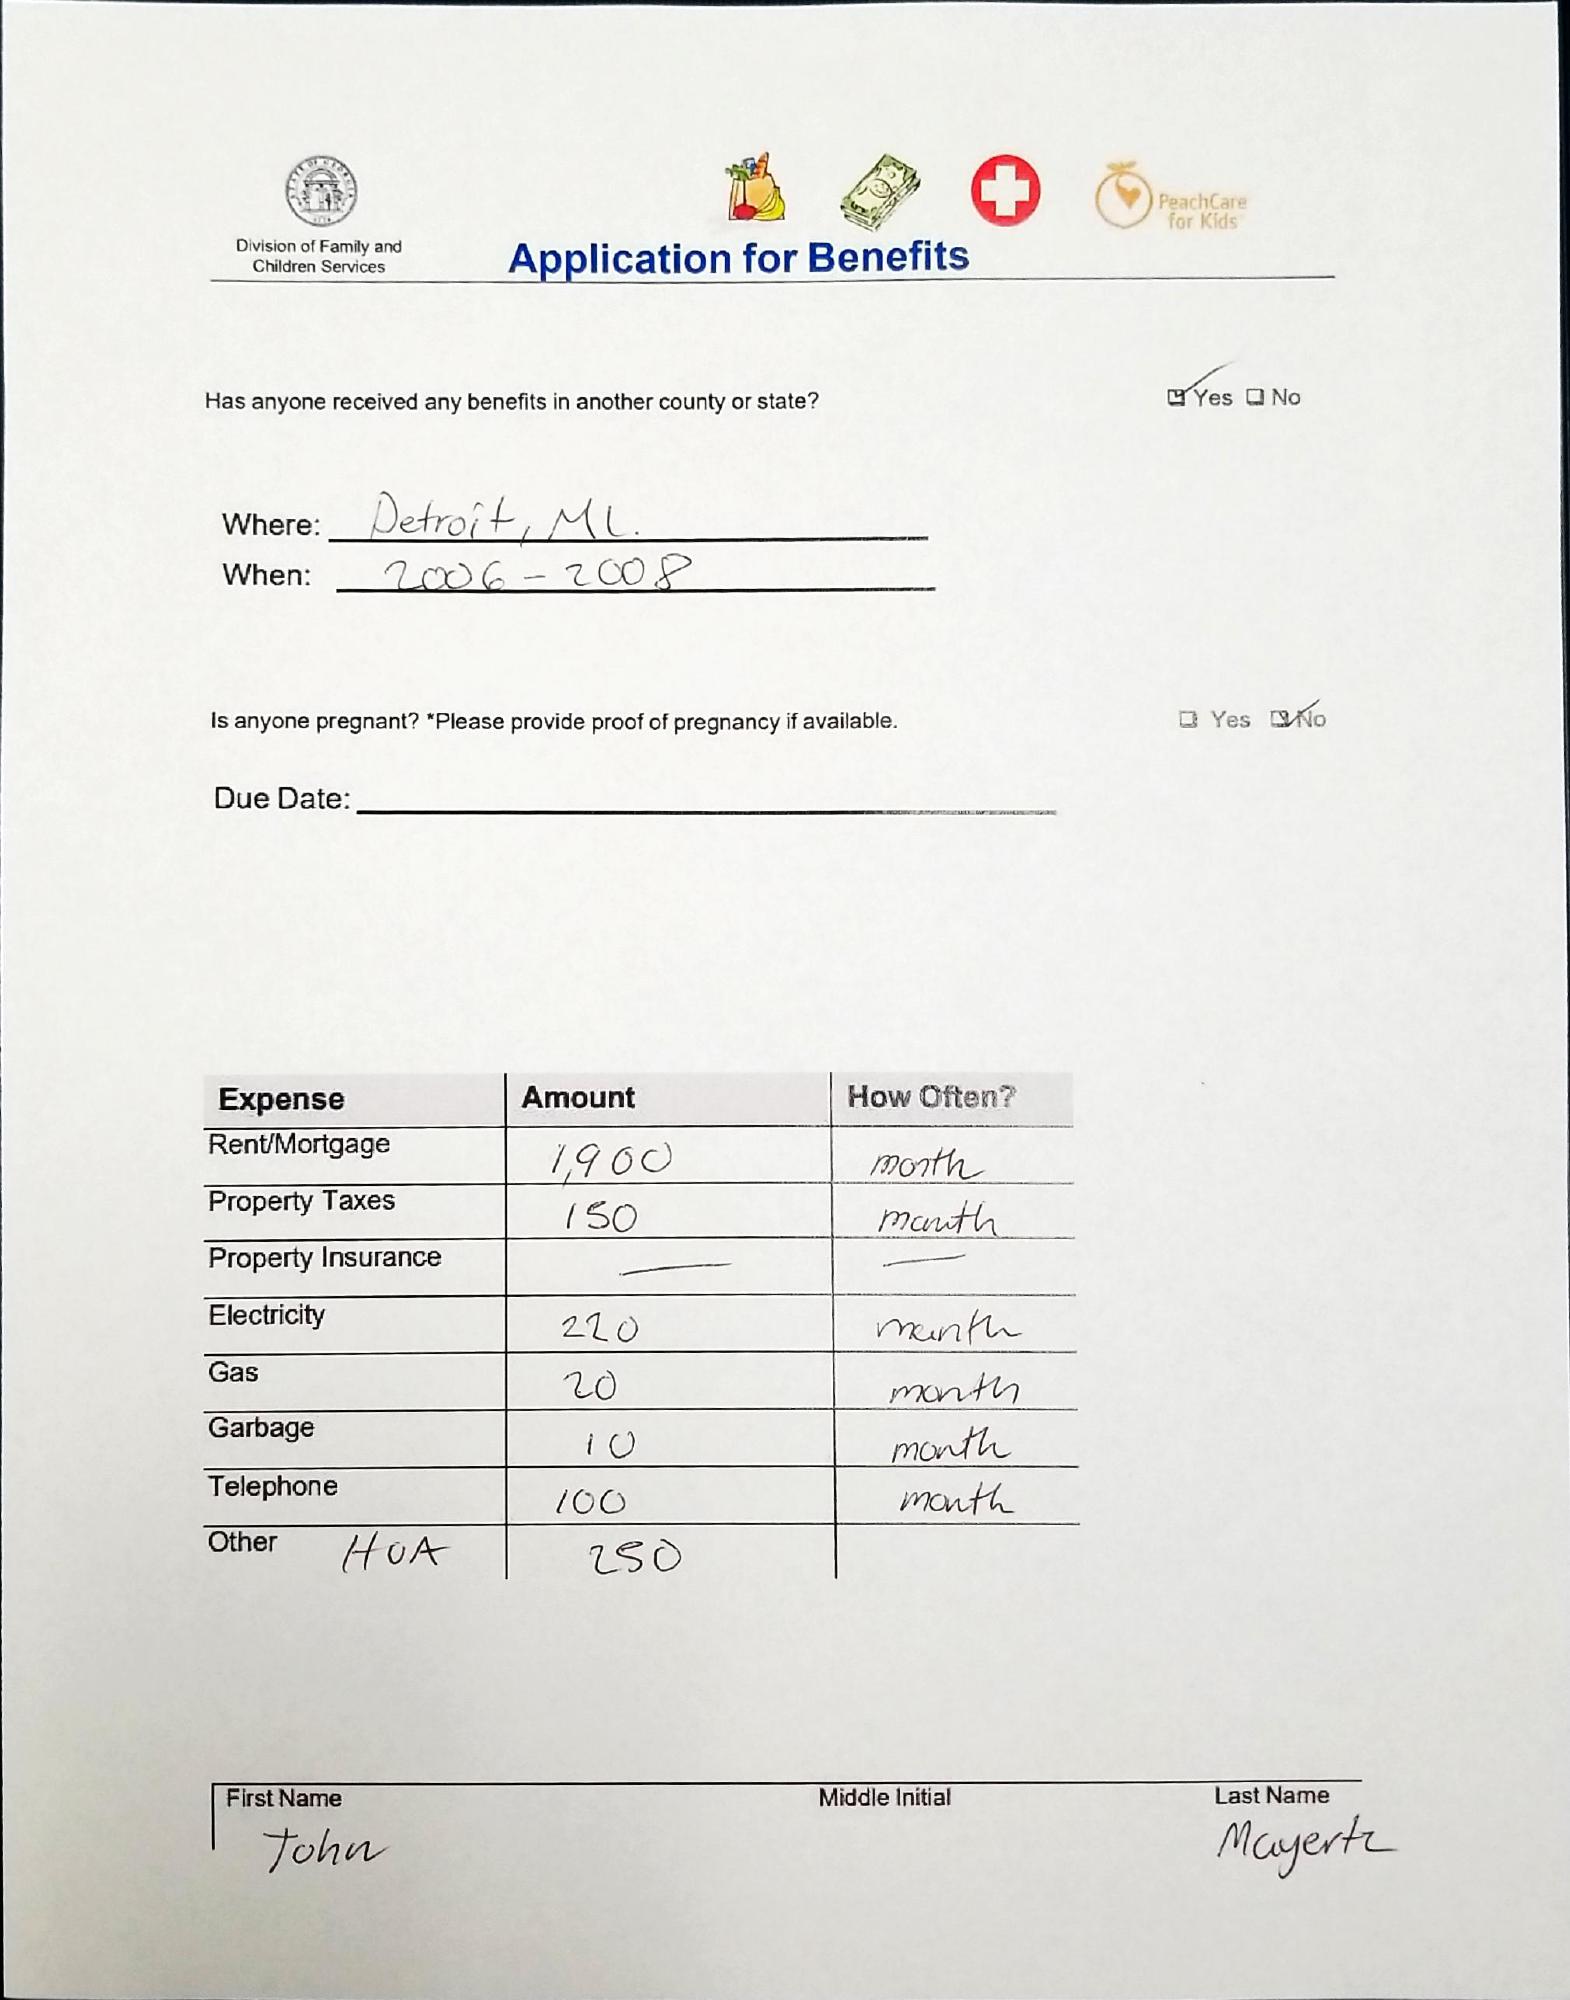 STATE OF GEORGIA
1776
Division of Family and
Children Services
PeachCare
for Kids
Application for Benefits
Has anyone received any benefits in another county or state? Yes No
Where: Detroit, MI.
When: 2006 - 2008
Is anyone pregnant? *Please provide proof of pregnancy if available. Yes No
Due Date:
Expense Amount How Often?
Rent/Mortgage 1,900 month
Property Taxes 150 month
Property Insurance — —
Electricity 220 month
Gas 20 month
Garbage 10 month
Telephone 100 month
Other HOA 250
First Name Middle Initial Last Name
John Mayertz